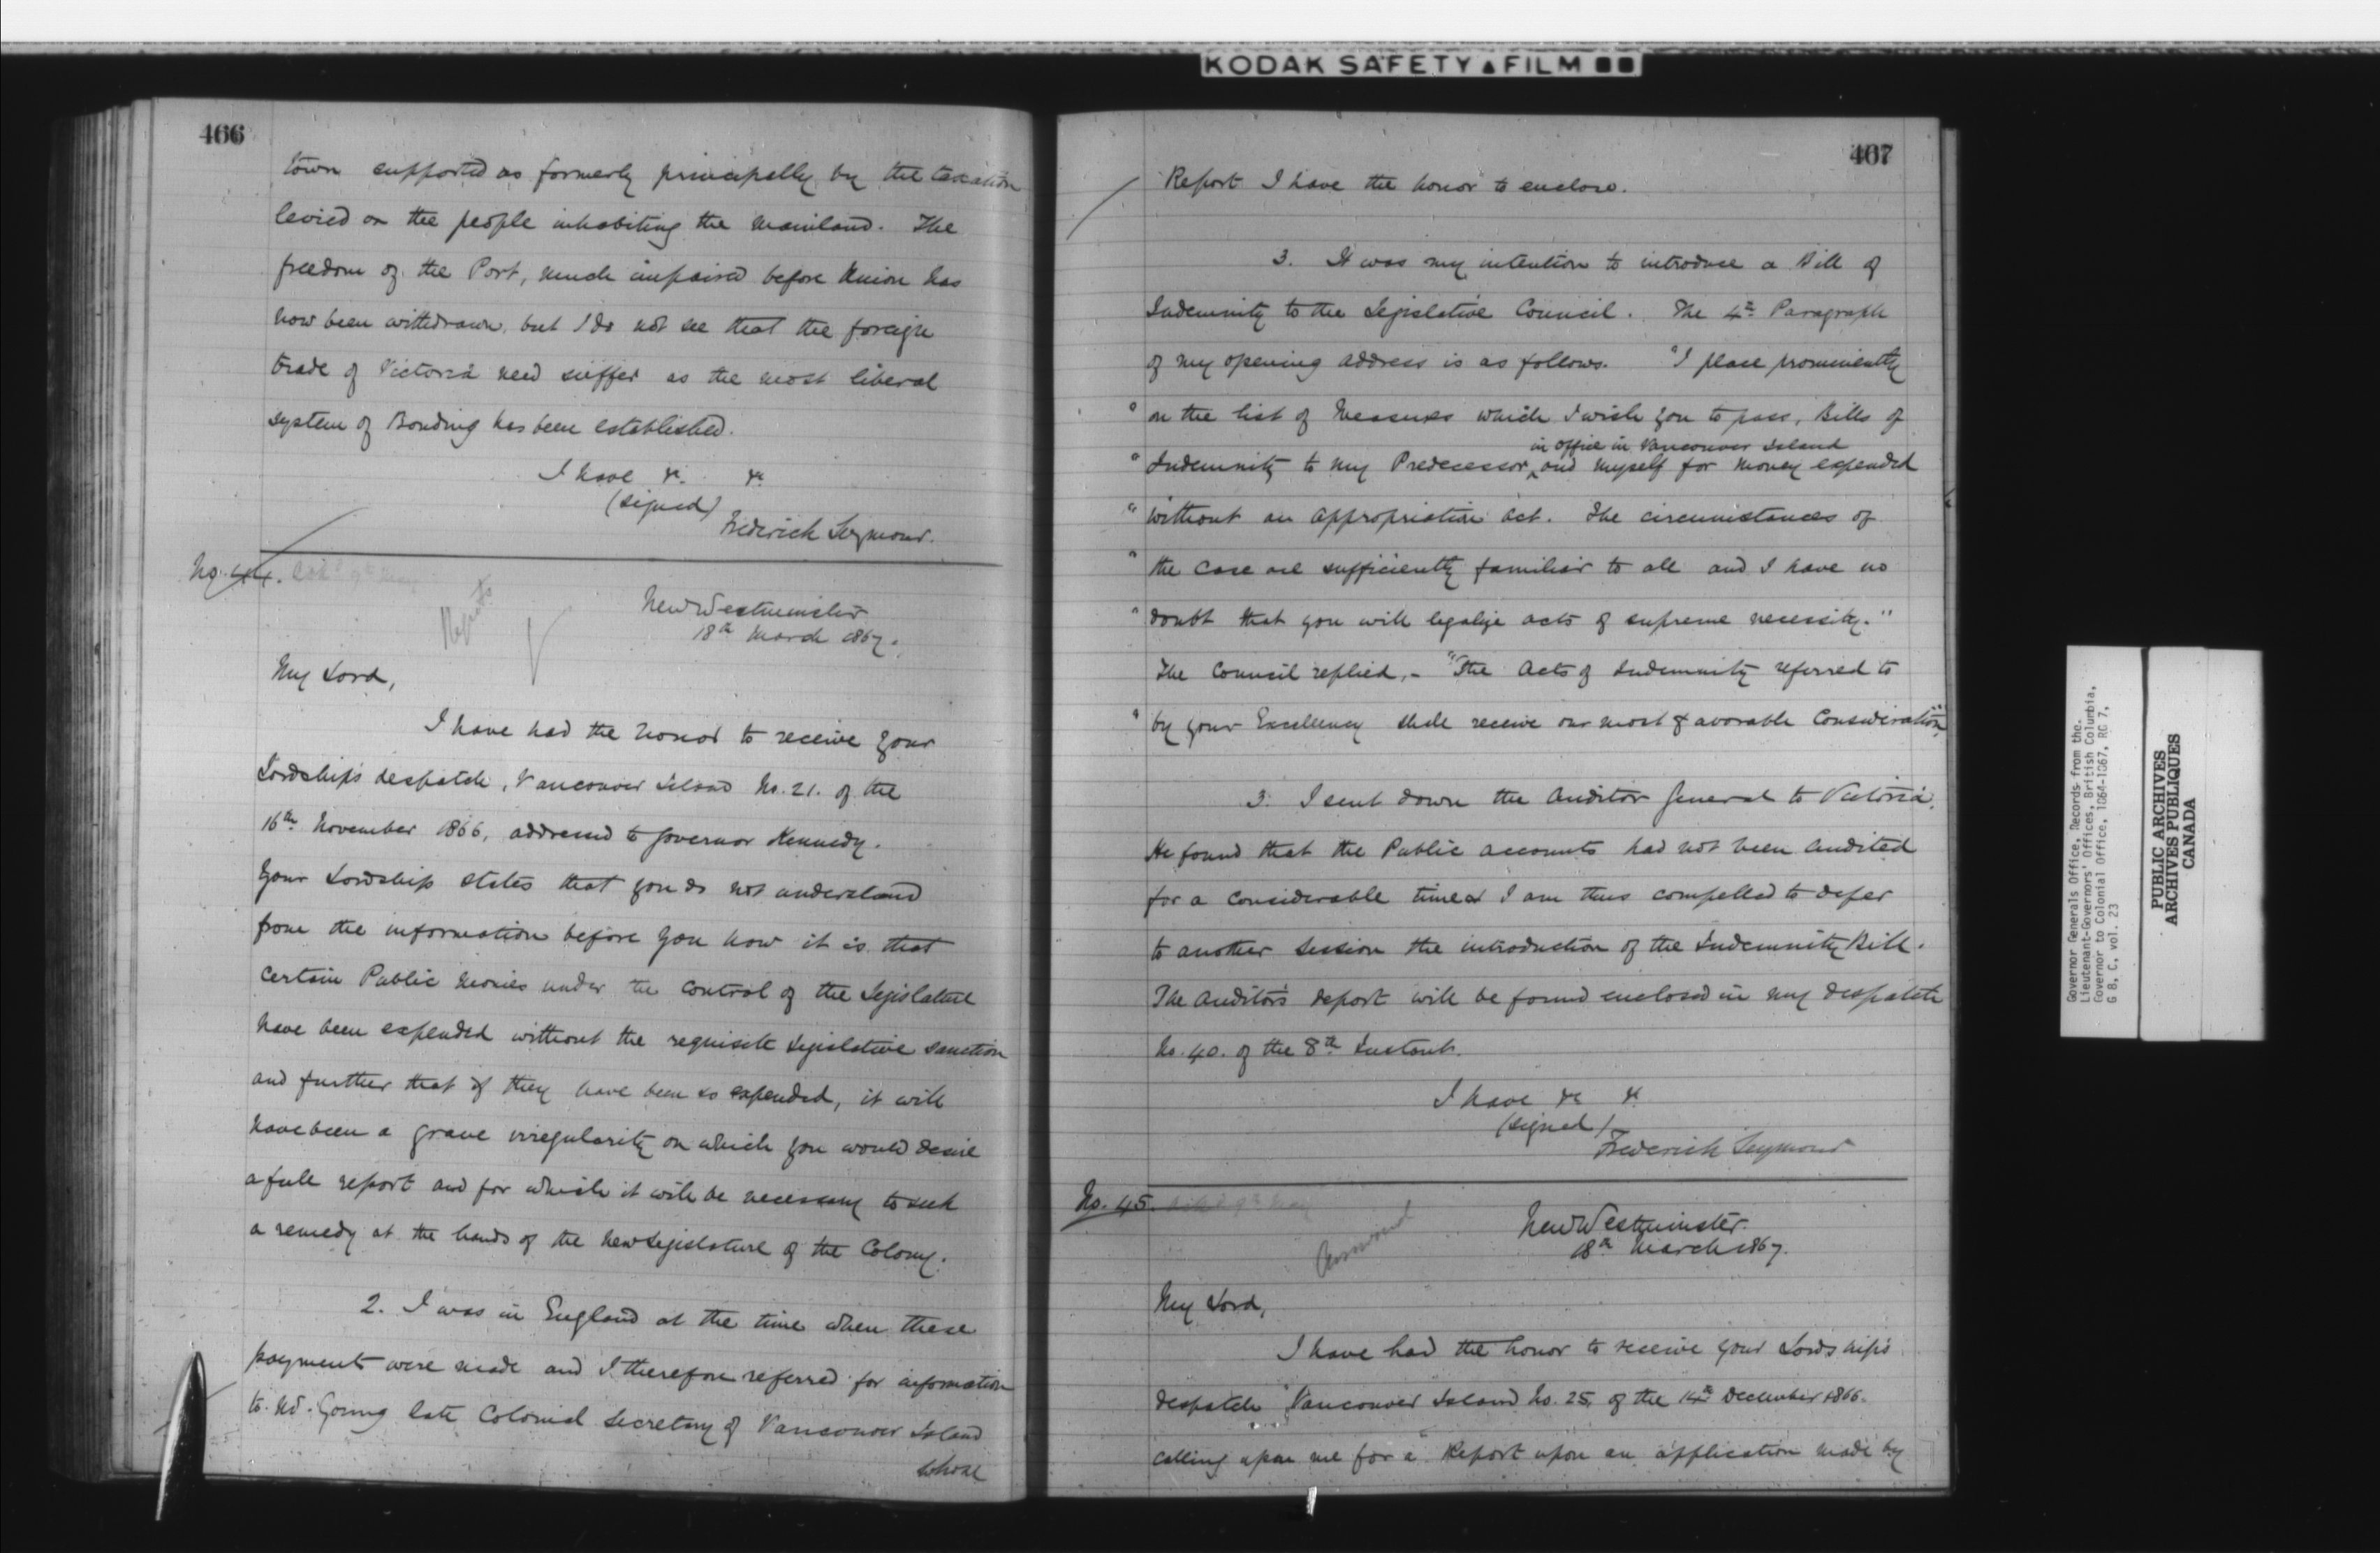 KODAK SAFETY ▲ FILM ■■
466
town supported as formerly principally by the taxation
levied on the people inhabiting the Mainland. The
freedom of the Port, much impaired before Union has
now been withdrawn, but I do not see that the foreign
trade of Victoria need suffer as the most liberal
system of Bonding has been established.
I have &c. &c
(signed)
Frederick Seymour.
No. 44. Ack^d 9th May
New Westminster
18th March 1867.
My Lord,
I have had the honor to receive your
Lordship's despatch, Vancouver Island No. 21. of the
16th November 1866, addressed to Governor Kennedy.
Your Lordship states that you do not understand
from the information before you how it is that
certain Public monies under the control of the Legislature
have been expended without the requisite Legislative sanction
and further that if they have been so expended, it will
have been a grave irregularity on which you would desire
a full report and for which it will be necessary to seek
a remedy at the hands of the new Legislature of the Colony.
2. I was in England at the time when these
payments were made and I therefore referred for information
to Mr. Young late Colonial Secretary of Vancouver Island
whose
407
Report I have the honor to enclose.
3. It was my intention to introduce a Bill of
Indemnity to the Legislative Council. The 4th Paragraph
of my opening address is as follows. "I place prominently
" on the list of Measures which I wish you to pass, Bills of
in office in Vancouver Island
" Indemnity to my Predecessor ^ and myself for money expended
" without an appropriation act. The circumstances of
" the case are sufficiently familiar to all and I have no
" doubt that you will legalize acts of supreme necessity."
The Council replied, - "The Acts of Indemnity referred to
" by your Excellency shall receive our most favorable consideration"
3. I sent down the Auditor General to Victoria.
He found that the Public accounts had not been audited
for a considerable time & I am thus compelled to defer
to another session the introduction of the Indemnity Bill.
The Auditor's report will be found enclosed in my despatch
No. 40. of the 8th Instant.
I have &c &c
(signed)
Frederick Seymour
No. 45. Ack^d 9th May
Answered
New Westminster.
18th March 1867.
My Lord,
I have had the honor to receive your Lordship's
despatch "Vancouver Island No. 25, of the 14th December 1866.
calling upon me for a Report upon an application made by
Governor Generals Office, Records from the.
Lieutenant-Governors' Offices, British Columbia,
Governor to Colonial Office, 1064-1067, RG 7,
G 8, C, vol. 23
PUBLIC ARCHIVES
ARCHIVES PUBLIQUES
CANADA